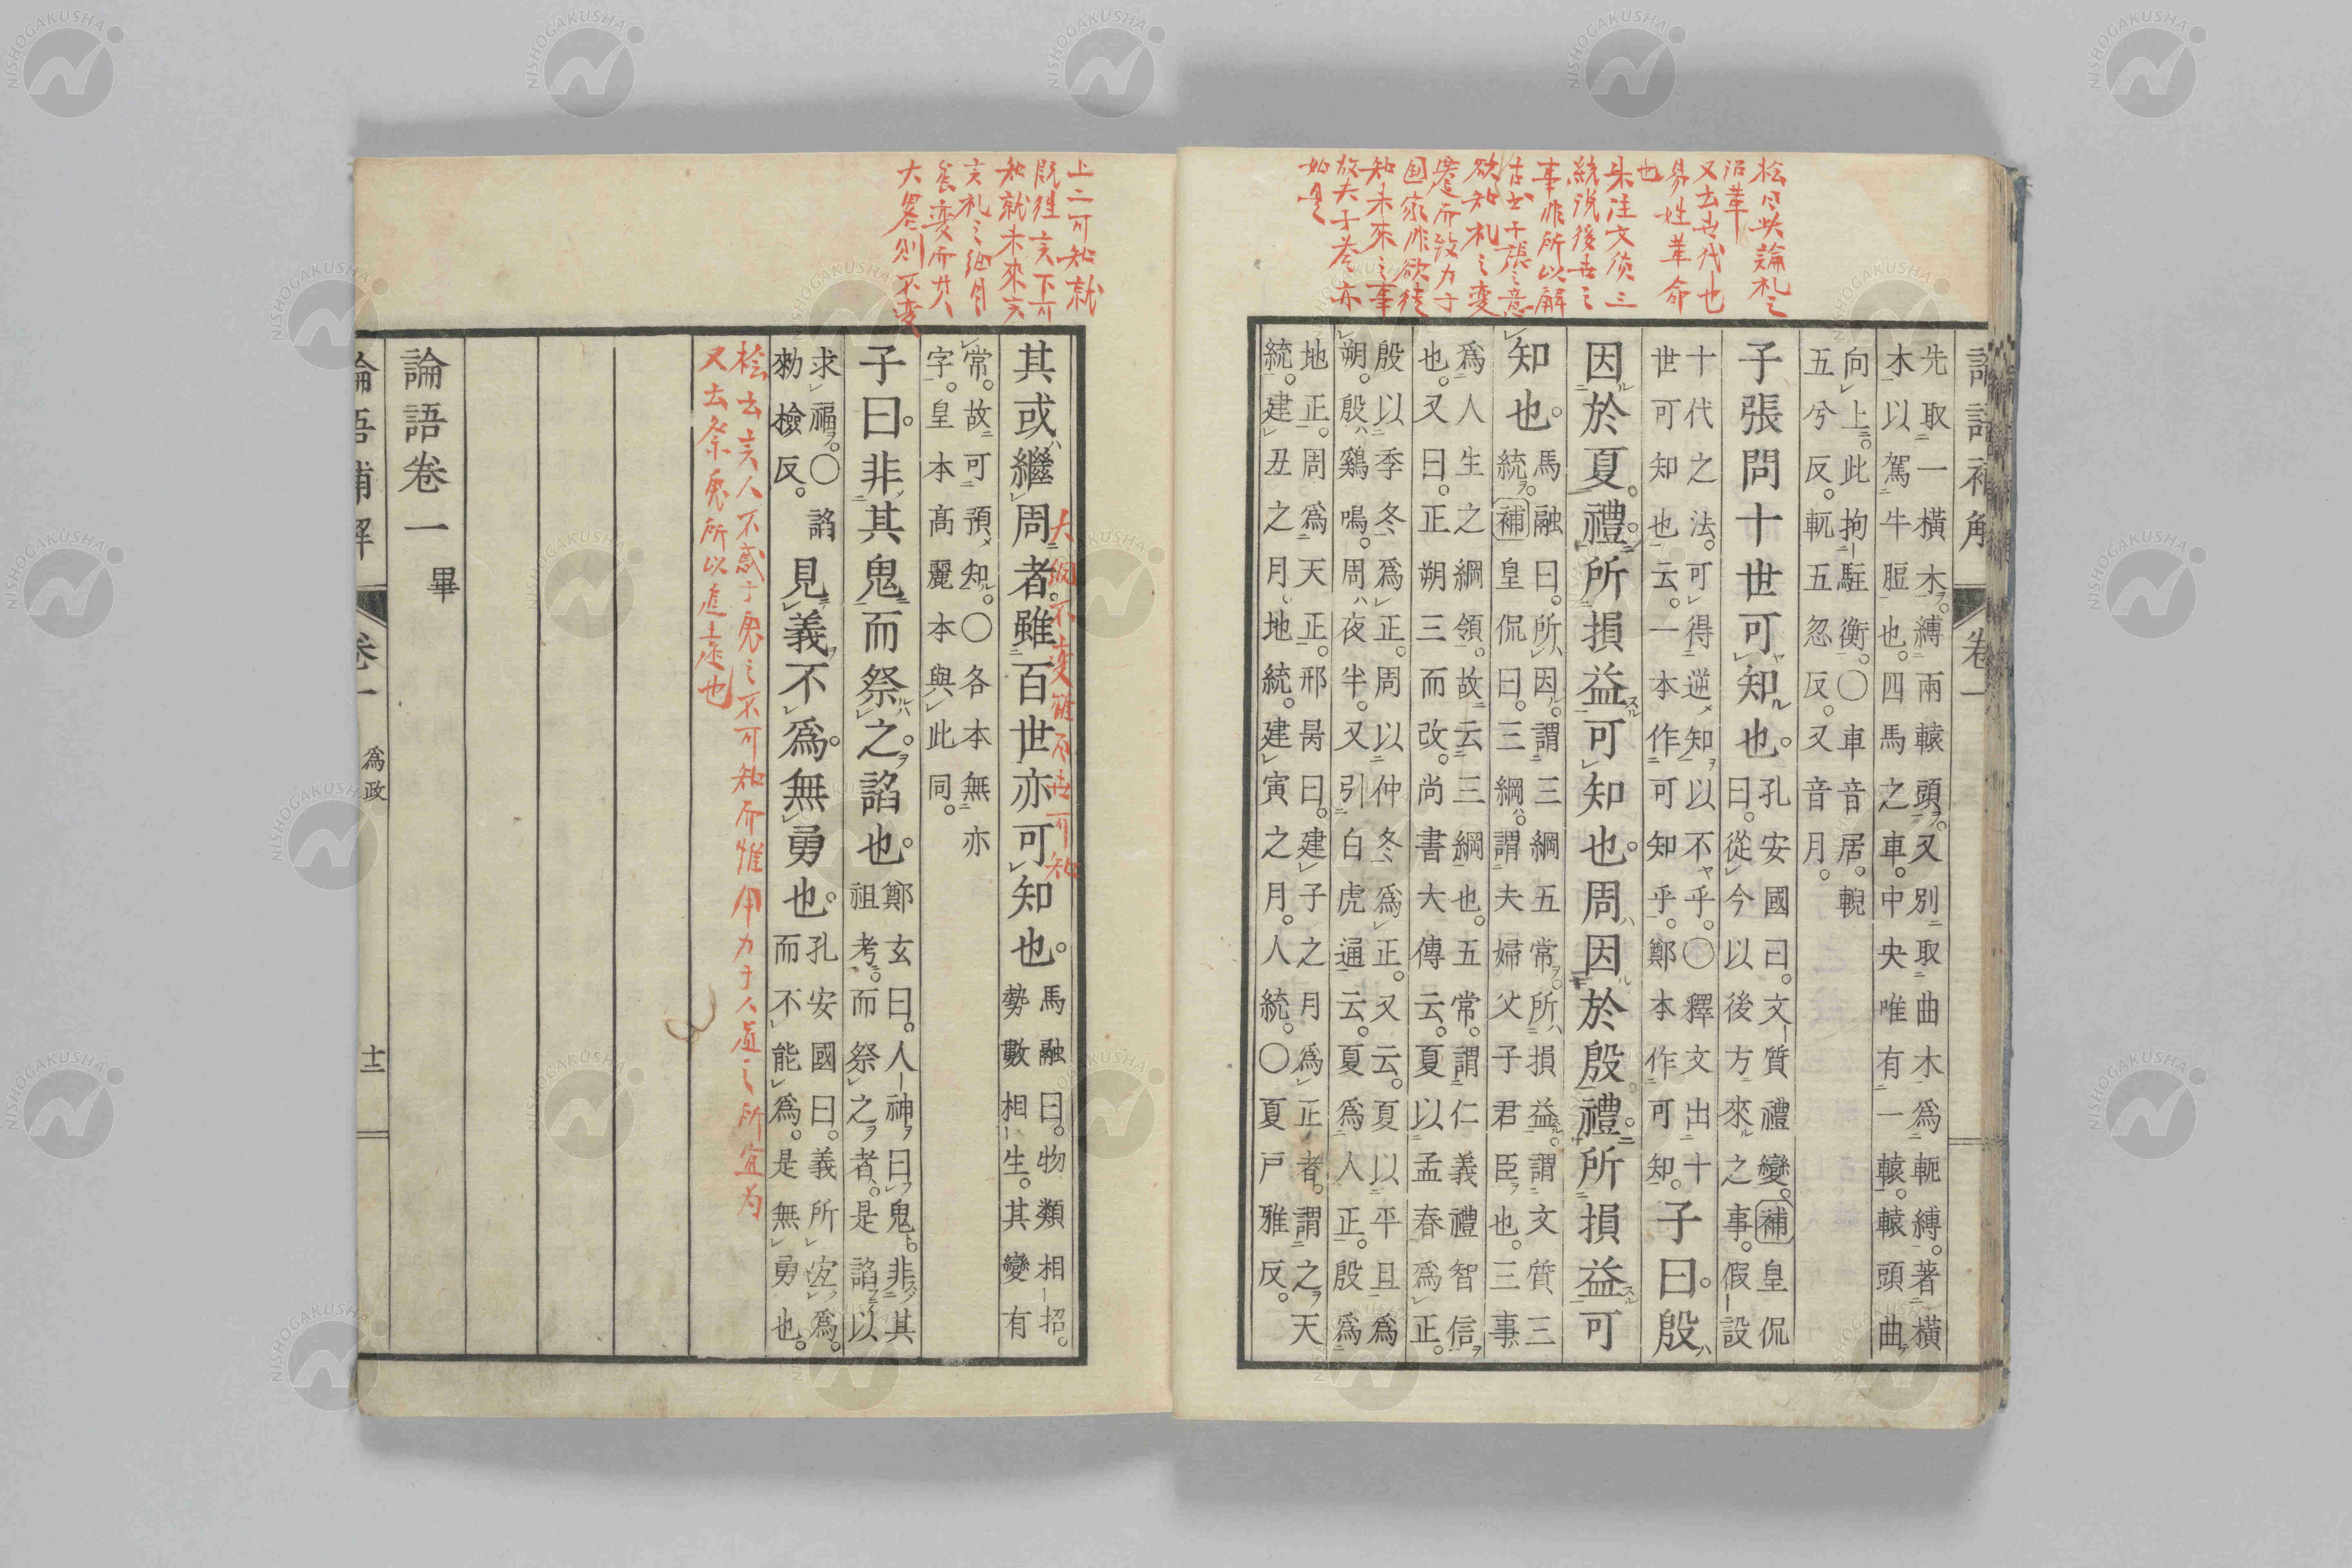 桧曰此論礼之
沿革
又云世代也
易姓革命
也
朱注文質三
統説後世之
事非所以解
子張之意
欲知礼之変
遷而致力于
国家非欲徒
知未来之事
故夫子答亦
如是
卷一
先取一橫木。縛兩轅頭。又別取曲木爲軛縛。著橫
木以駕牛脰也。四馬之車。中央唯有一轅。轅頭曲
向上。此拘駐衡。○車音居。輗
五兮反。軏五忽反。又音月。
子張問十世可知也。孔安國曰。文質禮變。補皇侃
曰。從今以後方來之事。假設
十代之法。可得逆知以不乎。○釋文出十
世可知也云。一本作可知乎。鄭本作可知。子曰。殷
因於夏禮。所損益可知也。周因於殷禮。所損益可
知也。馬融曰。所因。謂三綱五常。所損益。謂文質三
統。補皇侃曰。三綱。謂夫婦父子君臣也。三事
爲人生之綱領。故云三綱也。五常。謂仁義禮智信
也。又曰。正朔三而改。尚書大傳云。夏以孟春爲正。
殷以季冬爲正。周以仲冬爲正。又云。夏以平旦爲
朔。殷鷄鳴。周夜半。又引白虎通云。夏爲人正。殷爲
地正。周爲天正。邢昺曰。建子之月爲正者。謂之天
統。建丑之月地統。建寅之月。人統。○夏戸雅反。
上二可知就
既往言下可
知就未来言
言礼之細目
変而其
大畧則不変
其或繼周者。雖百世亦可知也。馬融曰。物類相招。
勢數相生。其變有
大綱不変雖百世可知
常。故可預知。○各本無亦
字。皇本高麗本與此同。
子曰。非其鬼而祭之。諂也。鄭玄曰。人神曰鬼。非其
祖考。而祭之者。是諂以
求福。○諂
勑檢反。見義不爲。無勇也。孔安國曰。義所宜爲。
而不能爲。是無勇也。
桧云言人不惑于鬼之不可知而惟用力于人道之所宜为
又云祭鬼所以追遠也
論語卷一畢
論語補解 卷一 爲政 十二